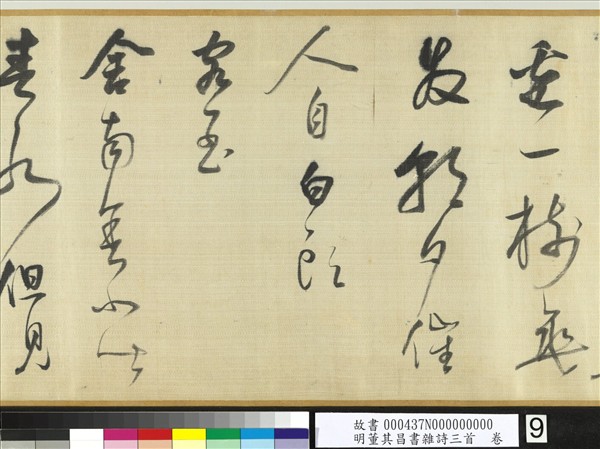 邊一樹垂
發朝夕催
人自白頭
客至
舍南舍北皆
春水但見
故書 000437N000000000
明董其昌書雜詩三首 卷
9